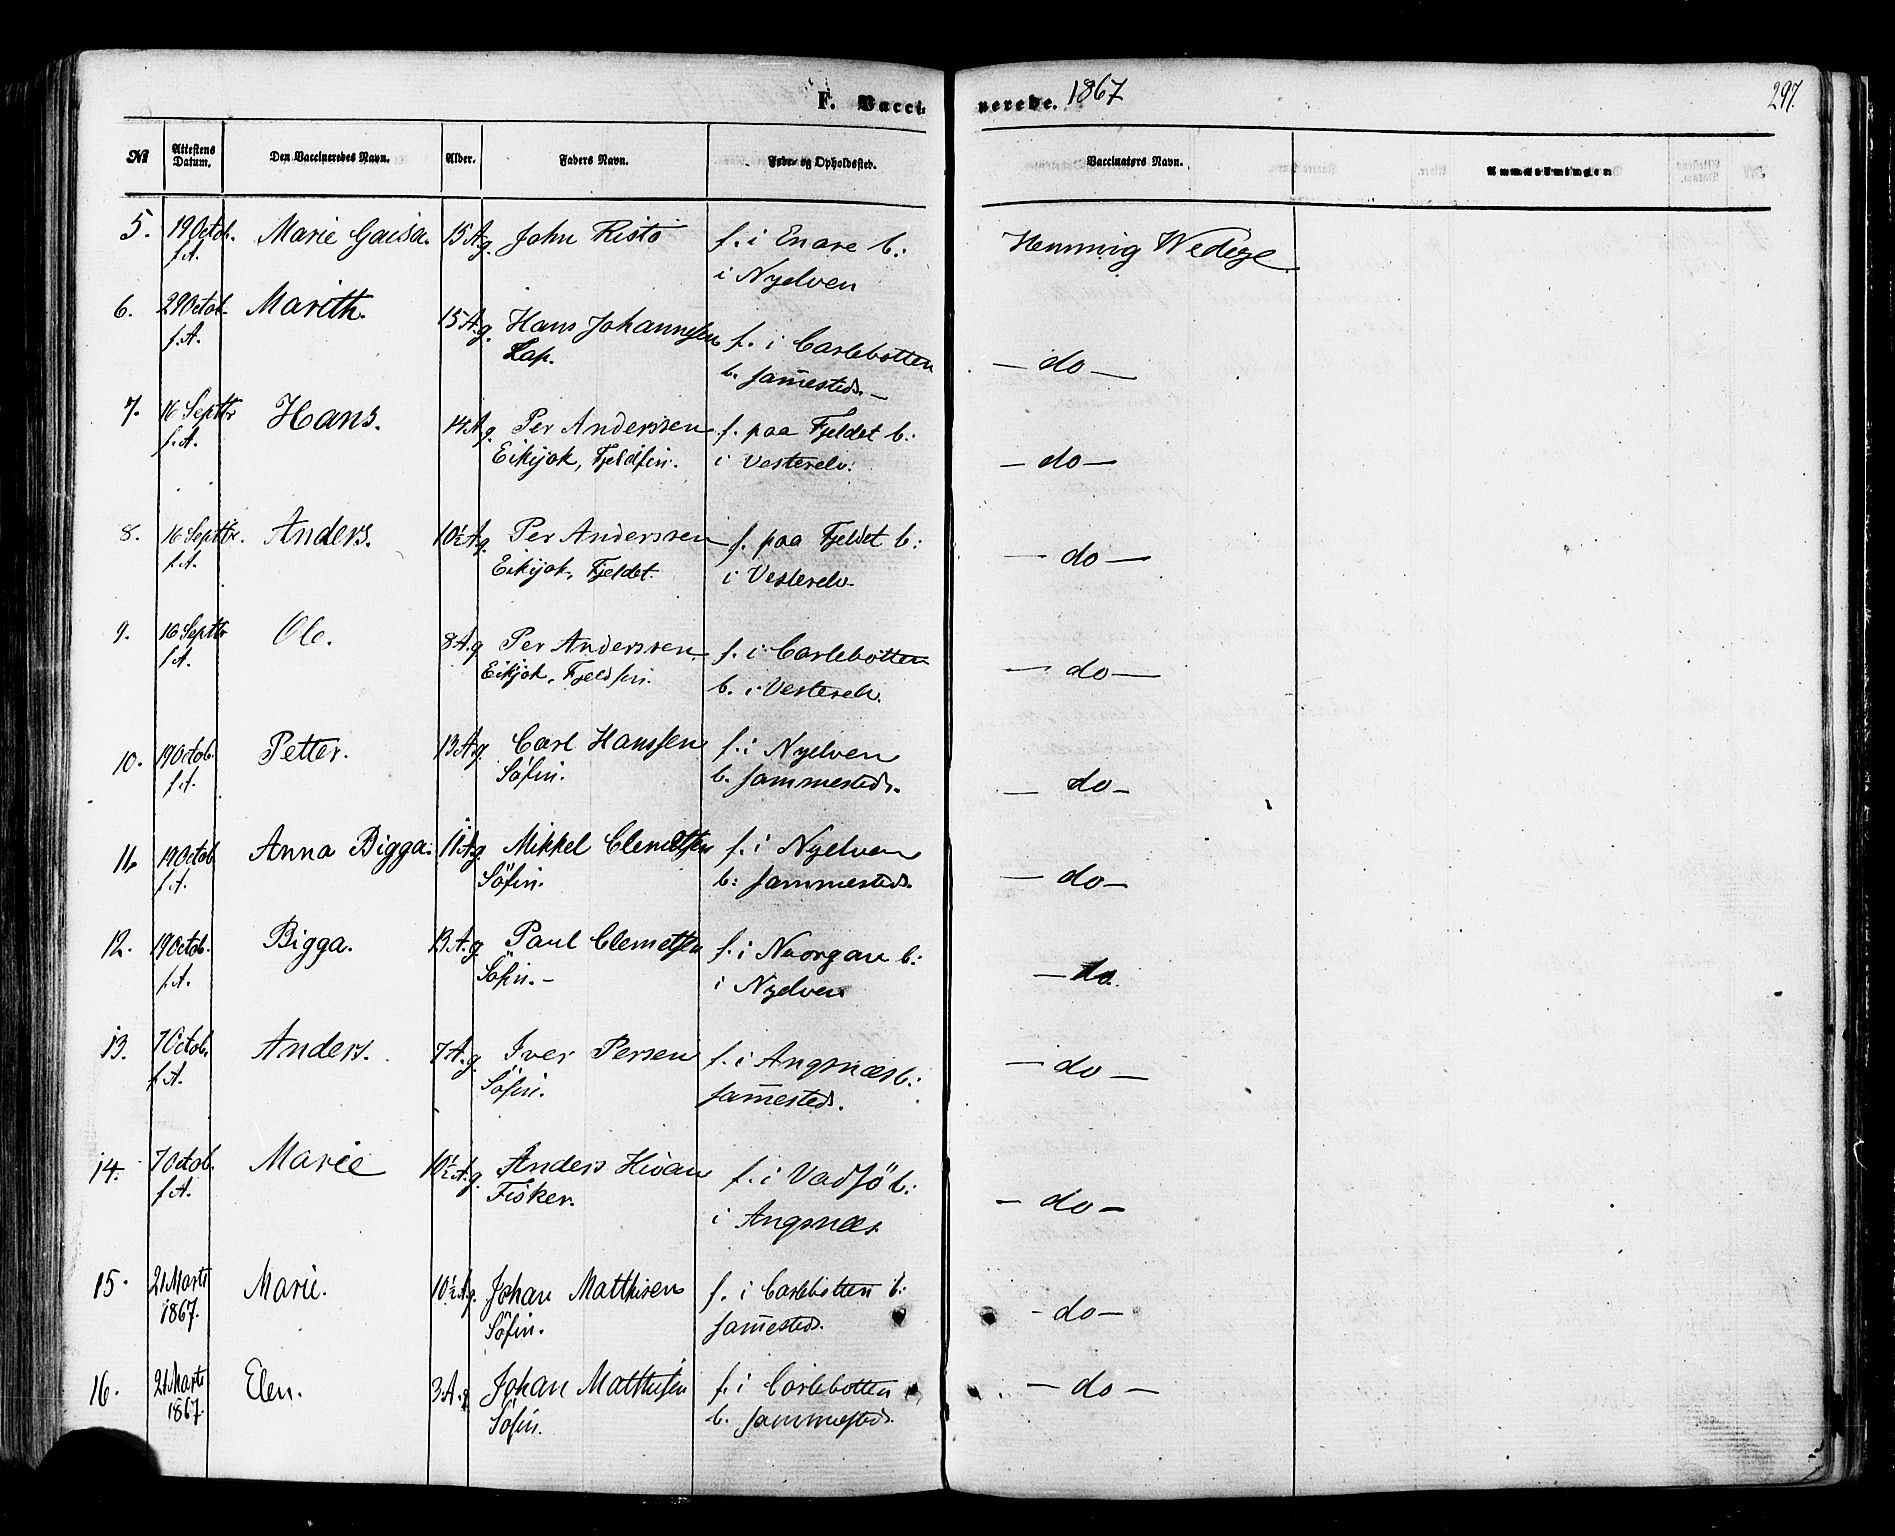 F. Vaccinerede. 1867
297.
No Attestens Datum. Den Vaccineredes Navn. Alder. Faders Navn. Føde- og Opholdssted. Vaccinators Navn. Anmærkninger
5. 19 Octob. Marie Gaisa. 15 A.g. John Risto f. i Enare b: Hemmig Wedege
f.A. i Nyelven
6. 29 Octob. Marith. 15 A.g. Hans Johannesen f. i Carlebotten — do —
f.A. Lap. b. sam̄esteds. —
7. 16 Septbr Hans. 14 A.g. Per Anderssen f. paa Fjeldet b: — do —
f.A. Eikijok, Fjeldfin. i Vesterelv.
8. 16 Septbr. Anders. 10½ A.g. Per Anderssen f. paa Fjeldet b: — do —
f.A. Eikijok, Fjeldet. i Vesterelv.
9. 16 Septbr Ole. 8 A.g Per Anderssen f. i Carlebotten — do —
f.A. Eikjok, Fjeldfin. b. i Vesterelv.
10. 19 Octob. Petter. 13 A.g. Carl Hanssen f. i Nyelven — do —
f.A. Söfin. b. sammesteds.
11. 19 Octob. Anna Bigga. 11 A.g. Mikkel Clemetsen f. i Nyelven — do —
f.A. Söfin. b: sammesteds.
12. 19 Octob. Bigga. 13 A.g. Paul Clemetsen f. i Nuorgan b: — do.
f.A. Söfin. — i Nyelven
13. 7 Octob. Anders. 7 A.g. Iver Persen f. i Angsnæs b: — do —
f.A. Söfin. sam̄esteds.
14. 7 Octob. Marie 10½ A.g. Anders Hivan f. i Vadsö b: — do —
f.A. Fisker. i Angsnæs
15. 21 Marts Marie. 10½ A.g. Johan Matthisen f. i Carlebotten b: — do —
1867. Söfin. sam̄esteds.
16. 21 Marts Elen. 3 A.g. Johan Matthisen f. i Carlebotten — do —
1867. Söfin. b. sammesteds.